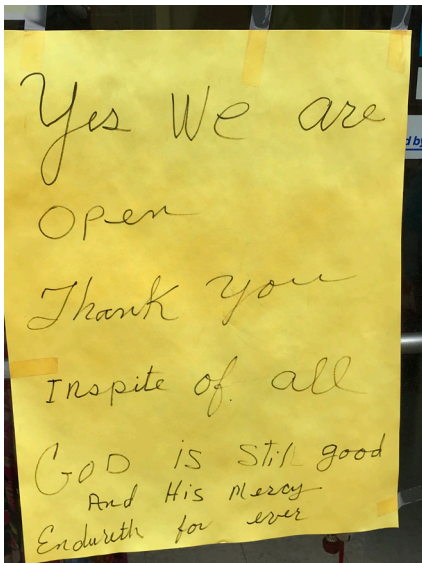 Yes We are
open
Thank you
Inspite of all
GOD is still good
And His Mercy
Endureth for ever
d by